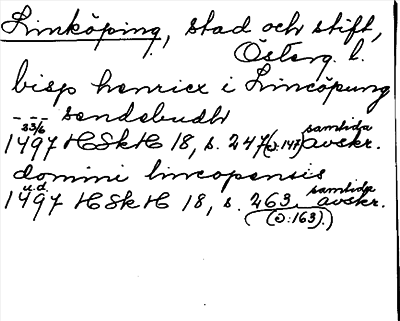 Linköping, stad och stift,
Österg. l.
bisp henricx i Lincöpung
--- sendebudh
23/6 1497 HSkH 18, s. 247 (ↄ: 147) samtida avskr.
domini lincopensis
u.d. 1497 HSkH 18, s. 263. samtida avskr.
(ↄ: 163).)